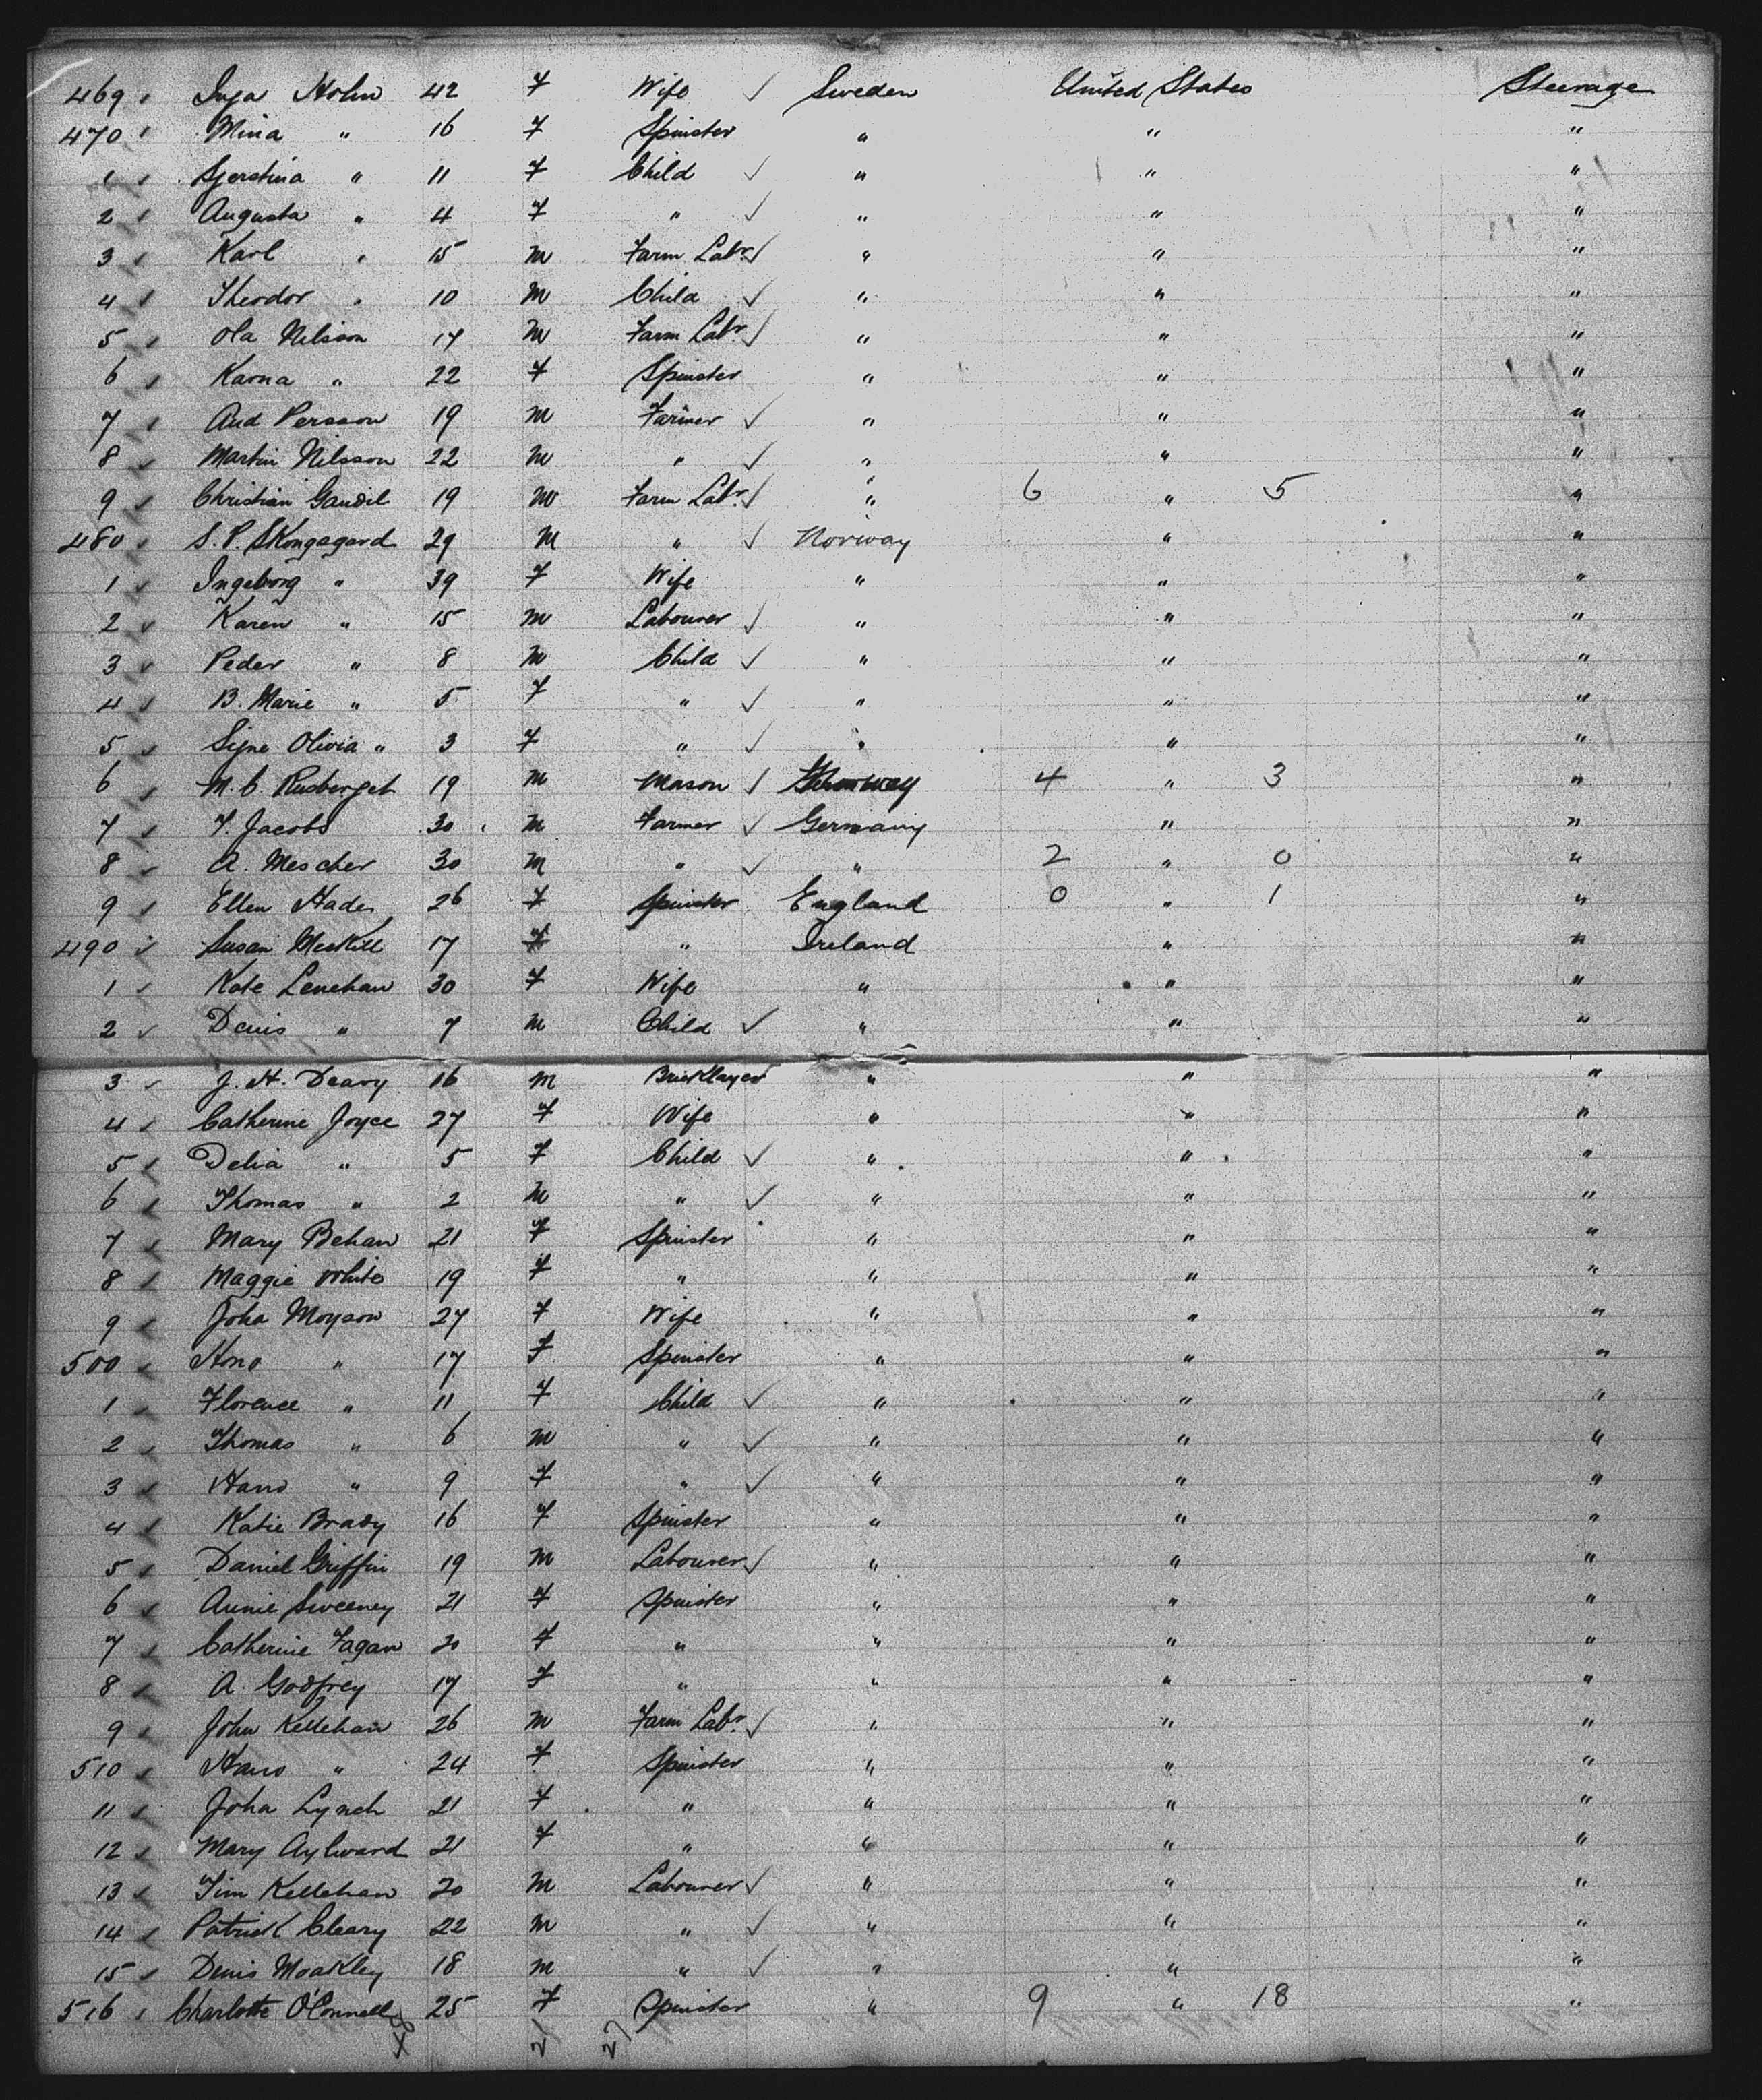 469 Inga Holm 42 F Wife ✓ Sweden United States Steerage
470 Mina " 16 F Spinster " " "
1 Sjerstina " 11 F Child ✓ " " "
2 Augusta " 4 F " ✓ " " "
3 Karl " 15 M Farm Labr ✓ " " "
4 Theodor " 10 M Child ✓ " " "
5 Ola Nilsson 17 M Farm Labr ✓ " " "
6 Karna " 22 F Spinster " " "
7 And Persson 19 M Farmer ✓ " " "
8 Martin Nilsson 22 M " ✓ " " "
9 Christian Gaudil 19 M Farm Labr ✓ " 6 " 5 "
480 S. P. Skongagard 29 M " ✓ Norway " "
1 Ingeborg " 39 F Wife " " "
2 Karen " 15 M Labourer ✓ " " "
3 Peder " 8 M Child ✓ " " "
4 B. Marie " 5 F " ✓ " " "
5 Signe Olivia " 3 F " ✓ " " "
6 M. C. Rusberget 19 M Mason ✓ 4 " 3 "
7 F. Jacobs 30 M Farmer ✓ Germany " "
8 A. Mescher 30 M " ✓ " 2 " 0 "
9 Ellen Hades 26 F Spinster England 0 " 1 "
490 Susan Meskill 17 F " Ireland " "
1 Kate Lenehan 30 F Wife " " "
2 Denis " 7 M Child ✓ " " "
3 J. H. Deavy 16 M Bricklayer " " "
4 Catherine Joyce 27 F Wife " " "
5 Delia " 5 F Child ✓ " " "
6 Thomas " 2 M " ✓ " " "
7 Mary Behan 21 F Spinster " " "
8 Maggie White 19 F " " " "
9 Joha Moyson 27 F Wife " " "
500 Hono " 17 F Spinster " " "
1 Florence " 11 F Child ✓ " " "
2 Thomas " 6 M " ✓ " " "
3 Hano " 9 F " ✓ " " "
4 Katie Brady 16 F Spinster " " "
5 Daniel Griffin 19 M Labourer ✓ " " "
6 Annie Sweeney 21 F Spinster " " "
7 Catherine Fagan 20 F " " " "
8 A. Godfrey 17 F " " " "
9 John Kellehan 26 M Farm Labr ✓ " " "
510 Hano " 24 F Spinster " " "
11 Joha Lynch 21 F " " " "
12 Mary Aylward 21 F " " " "
13 Tim Kellehan 20 M Labourer ✓ " " "
14 Patrick Cleary 22 M " ✓ " " "
15 Denis Moakley 18 M " ✓ " " "
516 Charlotte O'Connell 25 F Spinster " 9 " 18 "
48 21 27